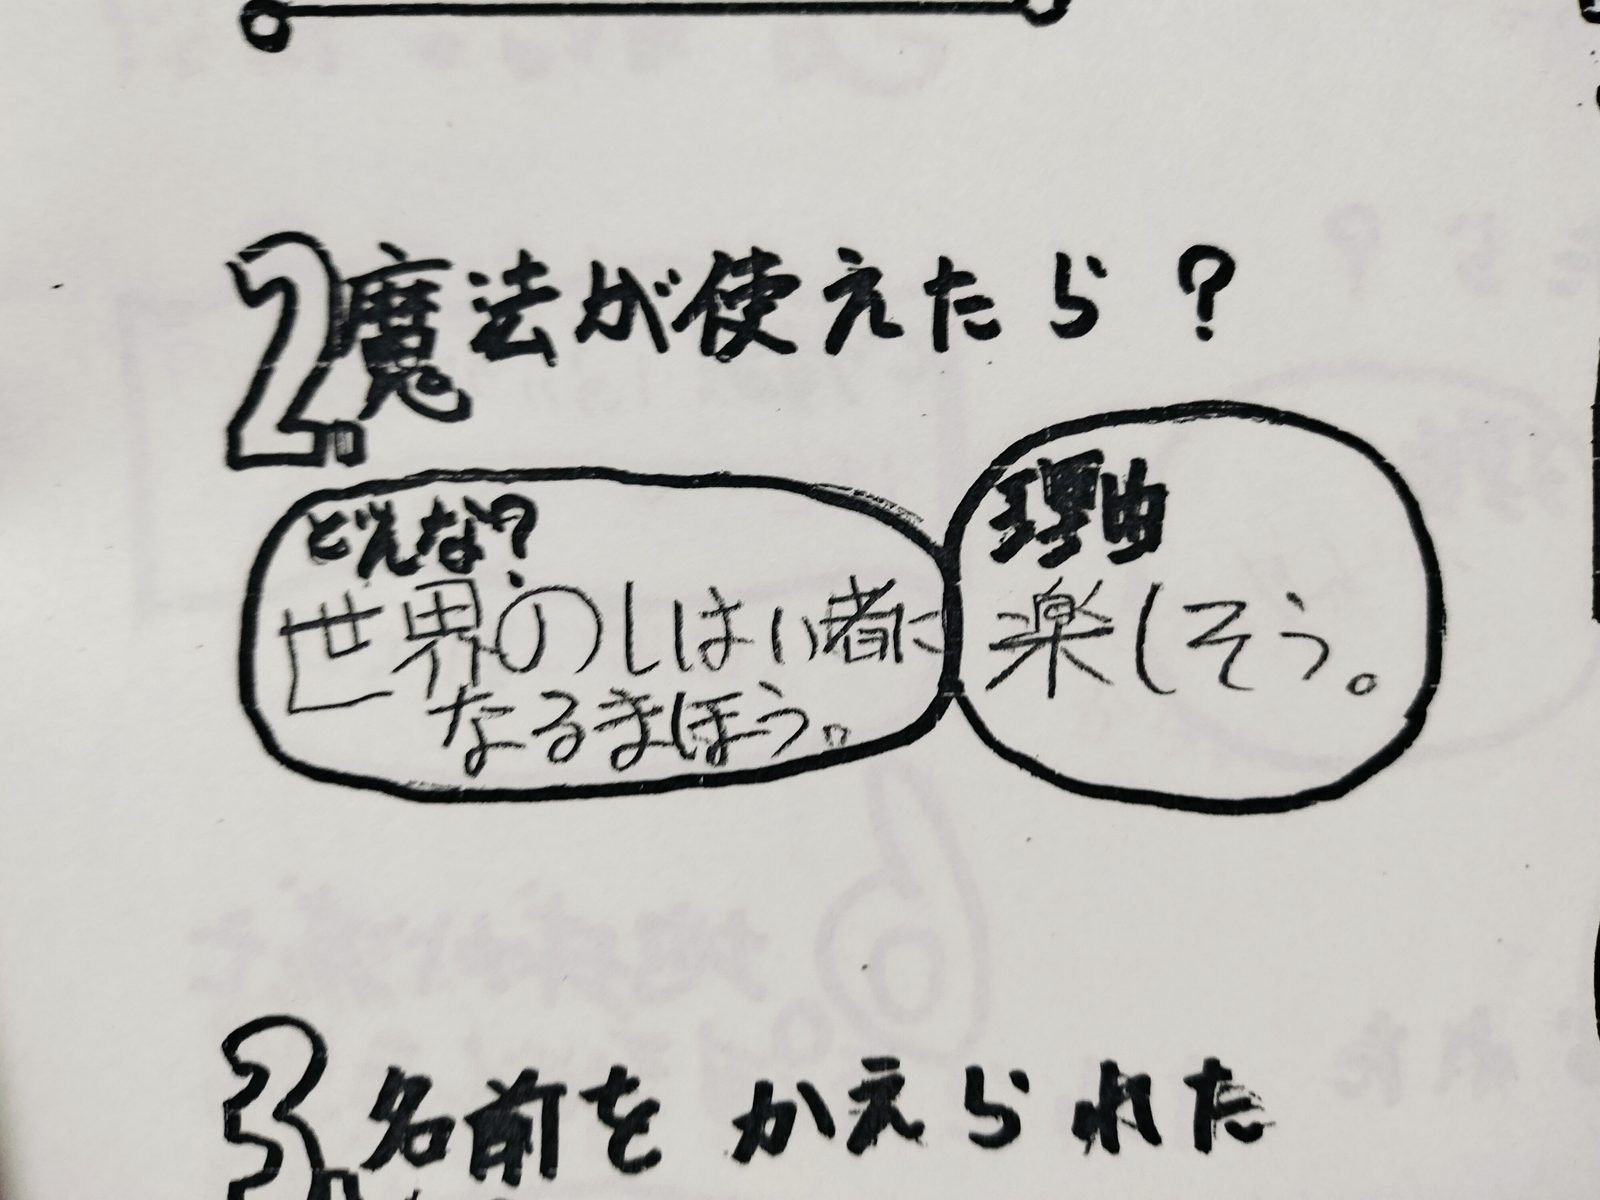 2. 魔法が使えたら？
どんな？
世界のしはい者に
なるまほう。
理由
楽しそう。
3. 名前をかえられた